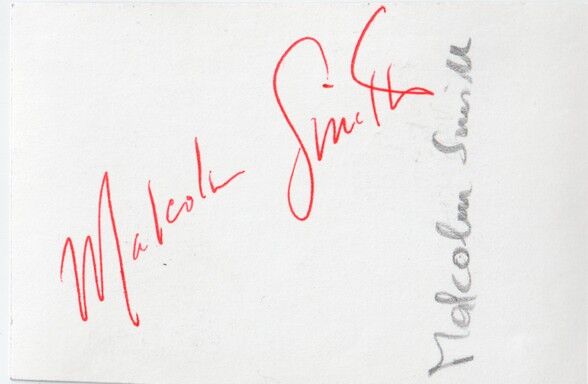 Malcolm Smith
Malcolm Smith